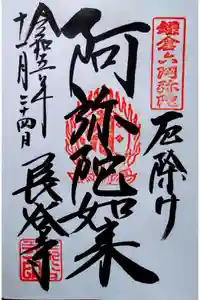 鎌倉六阿弥陀
厄除け
阿弥陀如来
令和五年
十二月二十四日
長谷寺